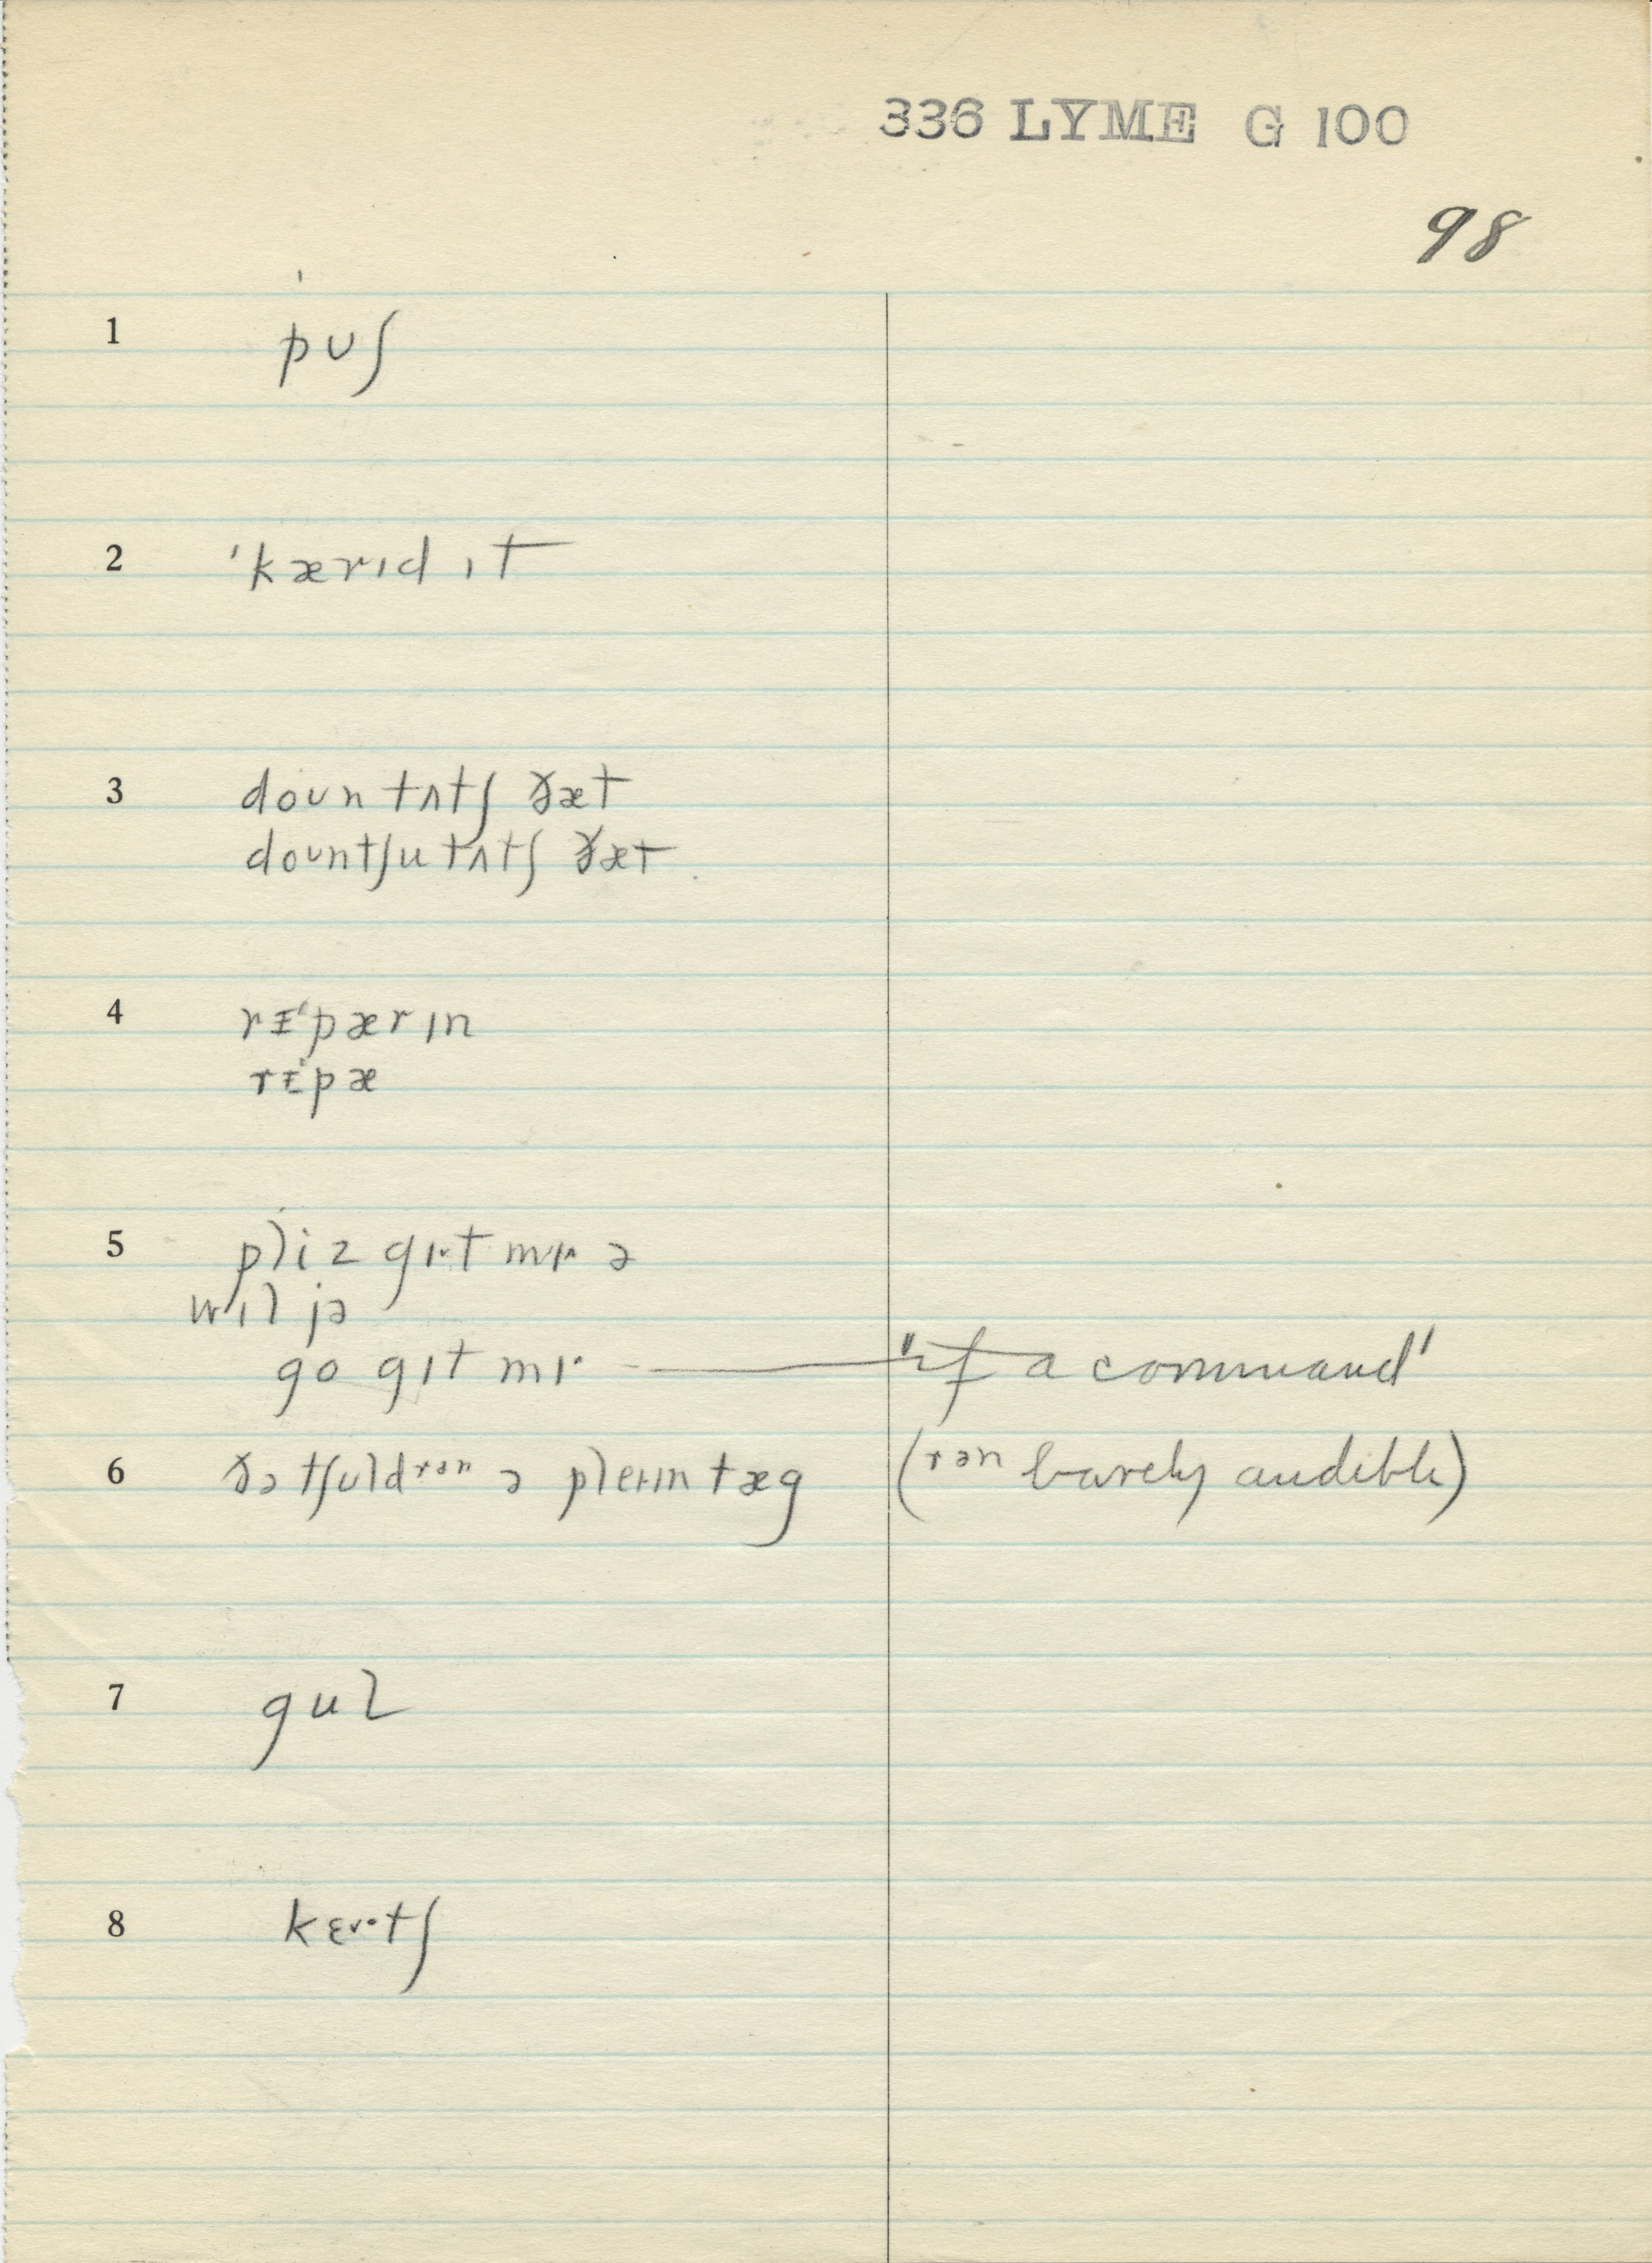 336 LYME G 100
98
1 pᴜʃ
2 ˈkærɪd ɪt
3 doᴜn tʌtʃ ðæt
doᴜntʃu tʌtʃ ðæt
4 rᵻˈpærɪn
rᵻˈpæ
5 pliz gɪˑt mɪˑ ə
wɪl jə
go gɪt mɪˑ — "if a command"
6 ðə tʃɪldrən ə pleɪɪn tæg (rən barely audible)
7 gul
8 kɛᴜˑtʃ